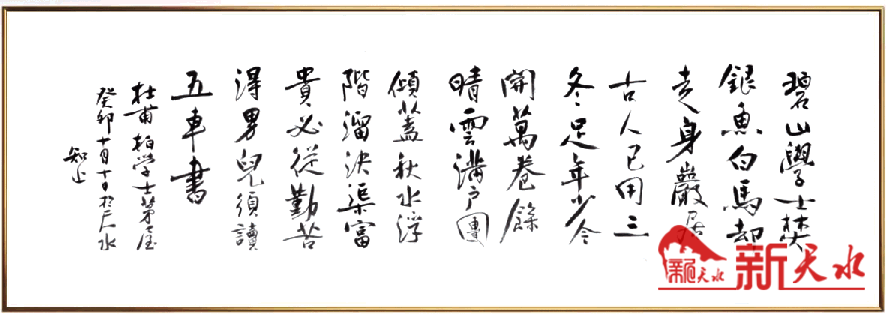 碧山學士焚
銀魚白馬却
走身嚴居
古人已用三
冬足年少今
開萬卷餘
晴雲滿戶團
傾蓋秋水浮
階溜決渠富
貴必從勤苦
得男兒須讀
五車書
杜甫柏學士茅屋
癸卯十月十日於天水
知止
新天水
新天水